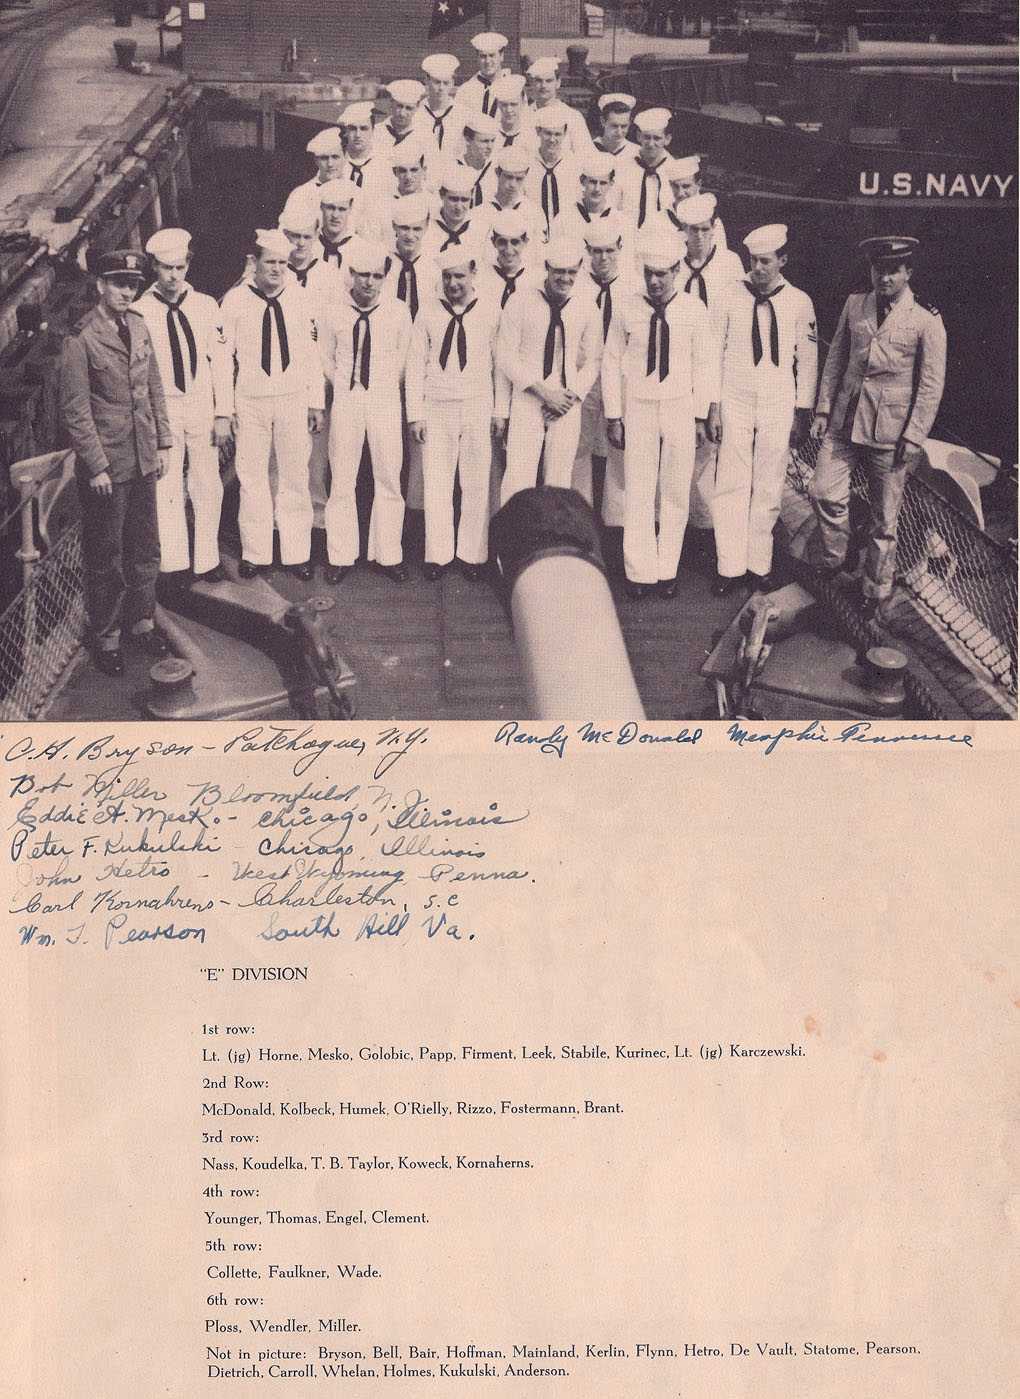 U.S. NAVY
C.H. Bryson - Patchogue, N.Y.
Randy McDonald Memphis Tennessee
Bob Miller Bloomfield, N.J.
Eddie A. Mesko - Chicago, Illinois
Peter F. Kukulski - Chicago, Illinois
John Hetro - West Wyoming, Penna.
Carl Kornahrens - Charleston, S.C
Wm. T. Pearson South Hill, Va.
"E" DIVISION
1st row:
Lt. (jg) Horne, Mesko, Golobic, Papp, Firment, Leek, Stabile, Kurinec, Lt. (jg) Karczewski.
2nd Row:
McDonald, Kolbeck, Humek, O'Rielly, Rizzo, Fostermann, Brant.
3rd row:
Nass, Koudelka, T. B. Taylor, Koweck, Kornaherns.
4th row:
Younger, Thomas, Engel, Clement.
5th row:
Collette, Faulkner, Wade.
6th row:
Ploss, Wendler, Miller.
Not in picture: Bryson, Bell, Bair, Hoffman, Mainland, Kerlin, Flynn, Hetro, De Vault, Statome, Pearson,
Dietrich, Carroll, Whelan, Holmes, Kukulski, Anderson.